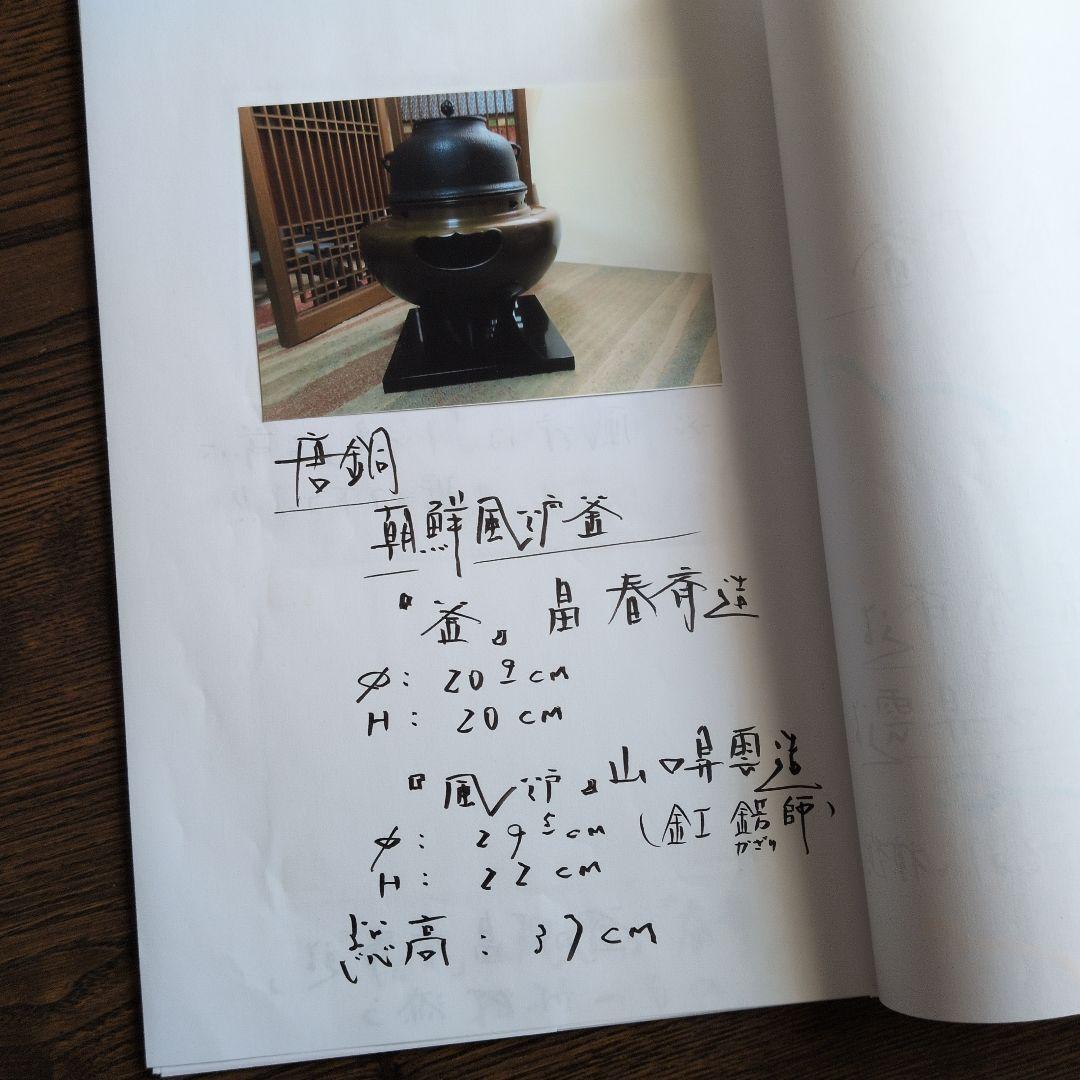 唐銅
朝鮮風炉釜
『釜』 畠春斉造
φ: 20.9cm
H: 20cm
『風炉』山口鼻雲造
φ: 29.5cm (釭 錺師)
かざり
H: 22cm
総高: 37cm